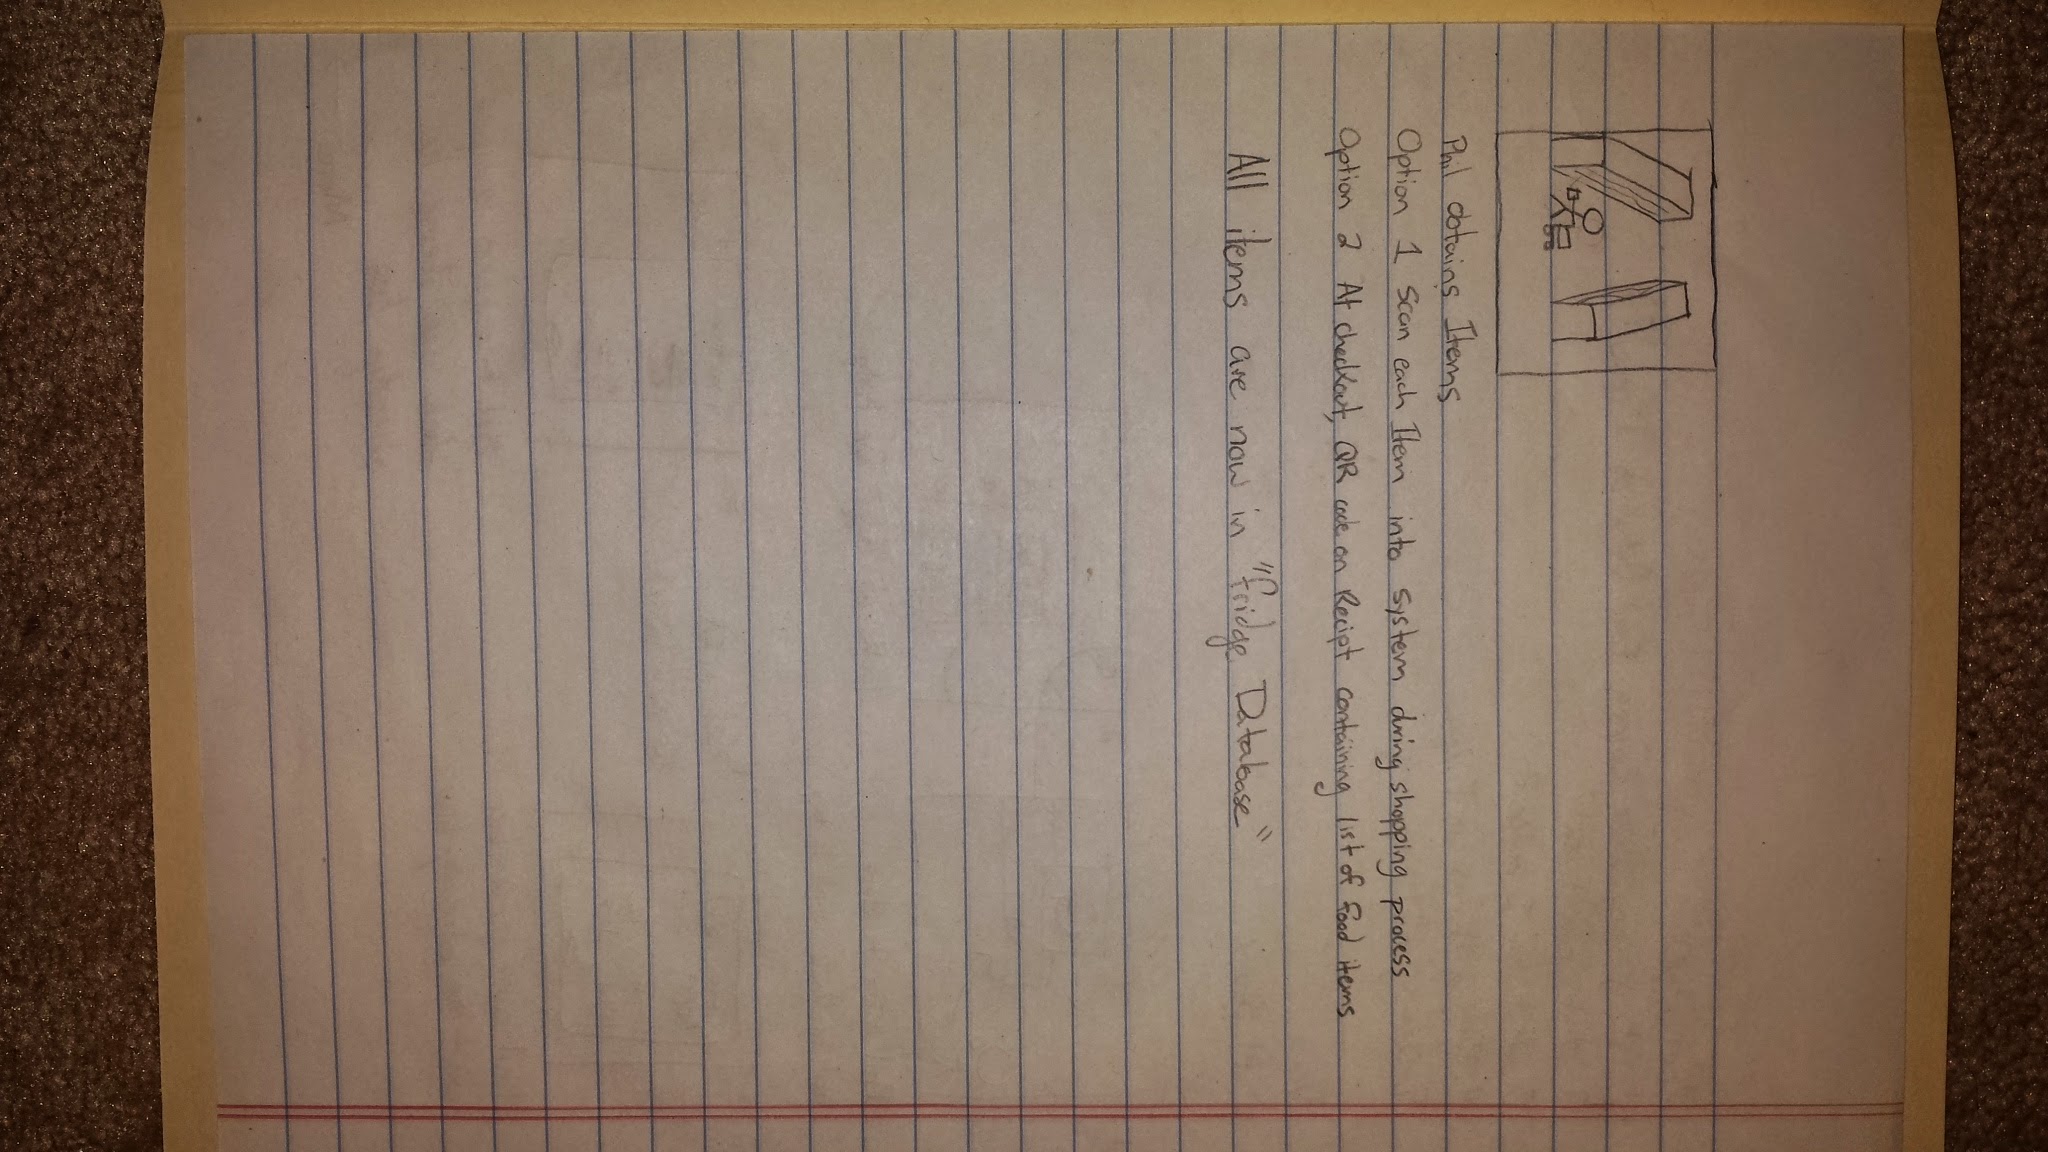 Phil obtains Items
Option 1 Scan each Item into System during shopping process
Option 2 At checkout, QR code on Reciept containing list of food items
All items are now in "fridge Database"